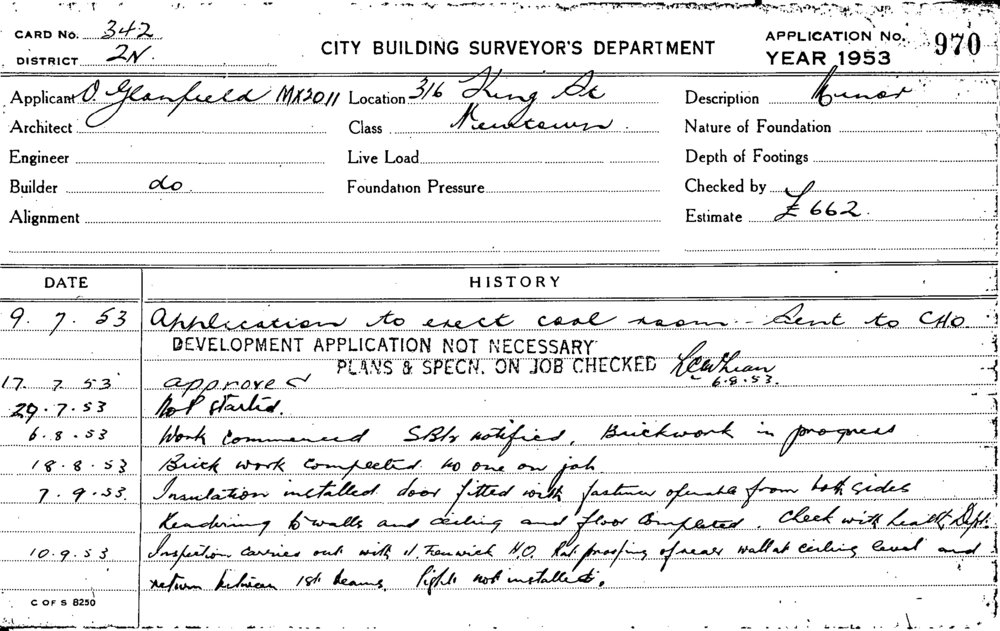 CARD No. 342
DISTRICT 2N.
CITY BUILDING SURVEYOR'S DEPARTMENT
APPLICATION No. 970
YEAR 1953
Applicant O. Glanfield MX2011
Location 316 King St
Description Minor
Architect
Class Newtown
Nature of Foundation
Engineer
Live Load
Depth of Footings
Builder do
Foundation Pressure
Checked by
Alignment
Estimate £ 662.
DATE HISTORY
9. 7. 53 Application to erect cool room - Sent to CHO.
DEVELOPMENT APPLICATION NOT NECESSARY
PLANS & SPECN. ON JOB CHECKED
6.8.53.
17. 7. 53 approved
29.7.53 Not started.
6.8.53 Work commenced SBIs notified. Brickwork in progress
18.8.53 Brick work completed no one on job
7.9.53. Insulation installed door fitted with fastener operable from both sides
Rendering to walls and ceiling and floor completed. Check with Health Dept.
10.9.53 Inspection carried out with J. Fenwick H.O. Rat proofing of rear wall at ceiling level and
return between beams. lights not installed.
C OF S 8250